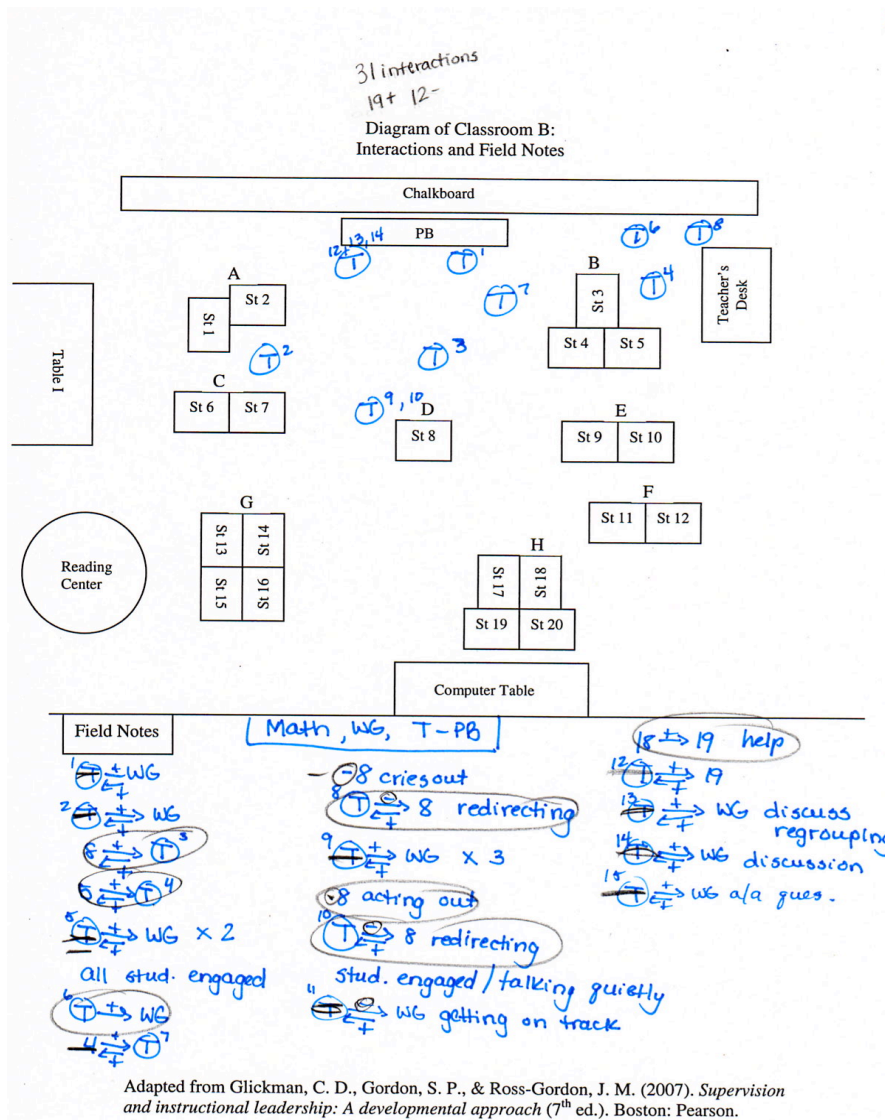 31 interactions
19+ 12-
Diagram of Classroom B:
Interactions and Field Notes
Chalkboard
PB
12+,13,14
T
T 1
T 6
T 8
A
St 2
St 1
T 2
T 7
T 3
B
St 3
St 4 St 5
T 4
Teacher's
Desk
Table I
C
St 6 St 7
T 9, 10
D
St 8
E
St 9 St 10
F
St 11 St 12
G
St 13 St 14
St 15 St 16
Reading
Center
H
St 17 St 18
St 19 St 20
Computer Table
Field Notes
Math, WG, T-PB
1 T + + WG
2 T + + WG
8 + + T 3
5 + + T 4
5 T + + WG x 2
all stud. engaged
6 T + WG
4 + + T 7
- - 8 cries out
8 T - + 8 redirecting
9 T + + WG x 3
- 8 acting out
10 T - + 8 redirecting
stud. engaged / talking quietly
11 T - + WG getting on track
18 + 19 help
12 T + + 19
13 T + + WG discuss
regrouping
14 T + + WG discussion
15 T + + WG a/a ques.
Adapted from Glickman, C. D., Gordon, S. P., & Ross-Gordon, J. M. (2007). Supervision
and instructional leadership: A developmental approach (7th ed.). Boston: Pearson.